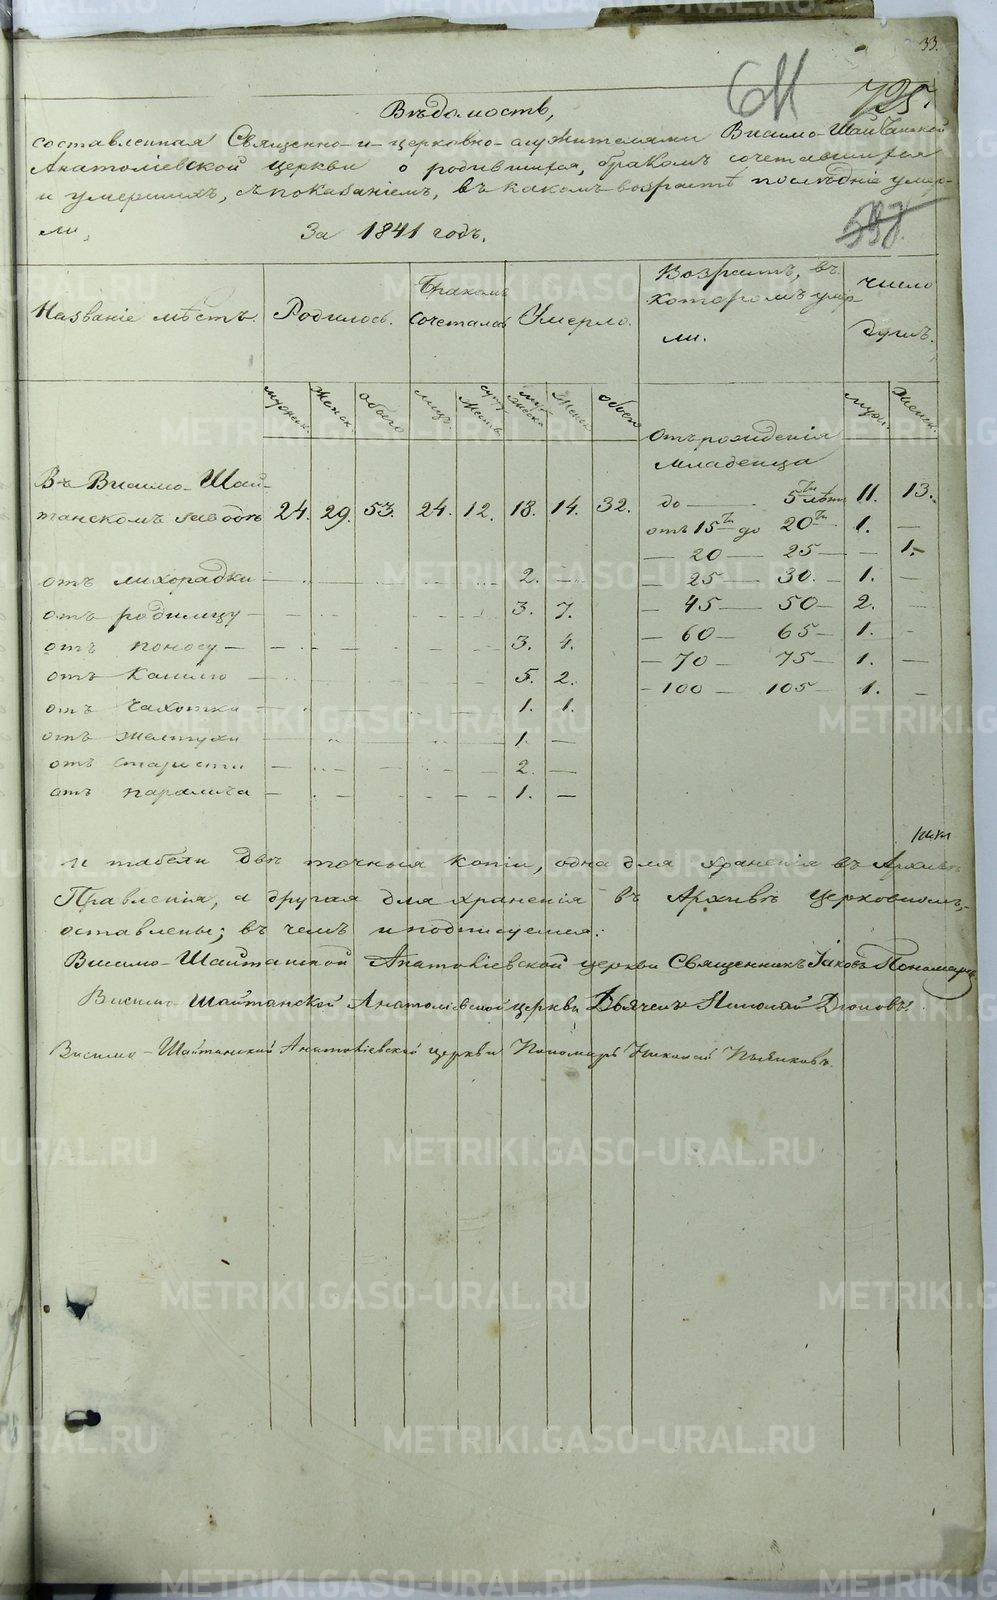 33.
Вѣдомость,
составленная Священно-и-церковно-служителями Висимо-Шайтанской
Анатоліевской церкви о родившихся, бракомъ сочетавшихся
и умершихъ, съ показаніемъ, въ какомъ возрастѣ послѣдніе умер-
ли,
За 1841 годъ.
Названіе мѣстъ. Родилось. Бракомъ сочеталось Умерло. Возрастъ, въ которомъ умер-ли. число душъ.
мужеск. Женск. обоего мужъ. супружествъ мужеска Женск обоего мужск. Женск.
Отъ рожденія
младенца
Въ Висимо-Шай-
танскомъ заводѣ 24. 29. 53. 24. 12. 18. 14. 32. до — 5ти лѣтъ 11. 13.
отъ 15ти до 20ти 1. —
— 20 — 25 — — 1.
отъ лихорадки — 2. — — 25 — 30. — 1. —
отъ родимцу — 3. 7. — 45 — 50 — 2.
отъ поносу — 3. 4. — 60 — 65 — 1. —
отъ кашлю — 5. 2. — 70 — 75 — 1. —
— 100 — 105 — 1. —
отъ чахотки — 1. 1.
отъ желтухи 1. —
отъ старости — 2. —
отъ паралича — 1. —
и табели двѣ точныя копіи, одна для храненія въ Архивѣ
Правленія, а другая для храненія въ Архивѣ Церковномъ,
оставлены; въ чемъ и подписуемся:
Висимо-Шайтанской Анатоліевской церкви Священникъ Іаковъ Пономаревъ
Висимо-Шайтанской Анатоліевской церкви Дьячекъ Николай
Висимо-Шайтанской Анатоліевской церкви Пономарь Николай
METRIKI.GASO-URAL.RU